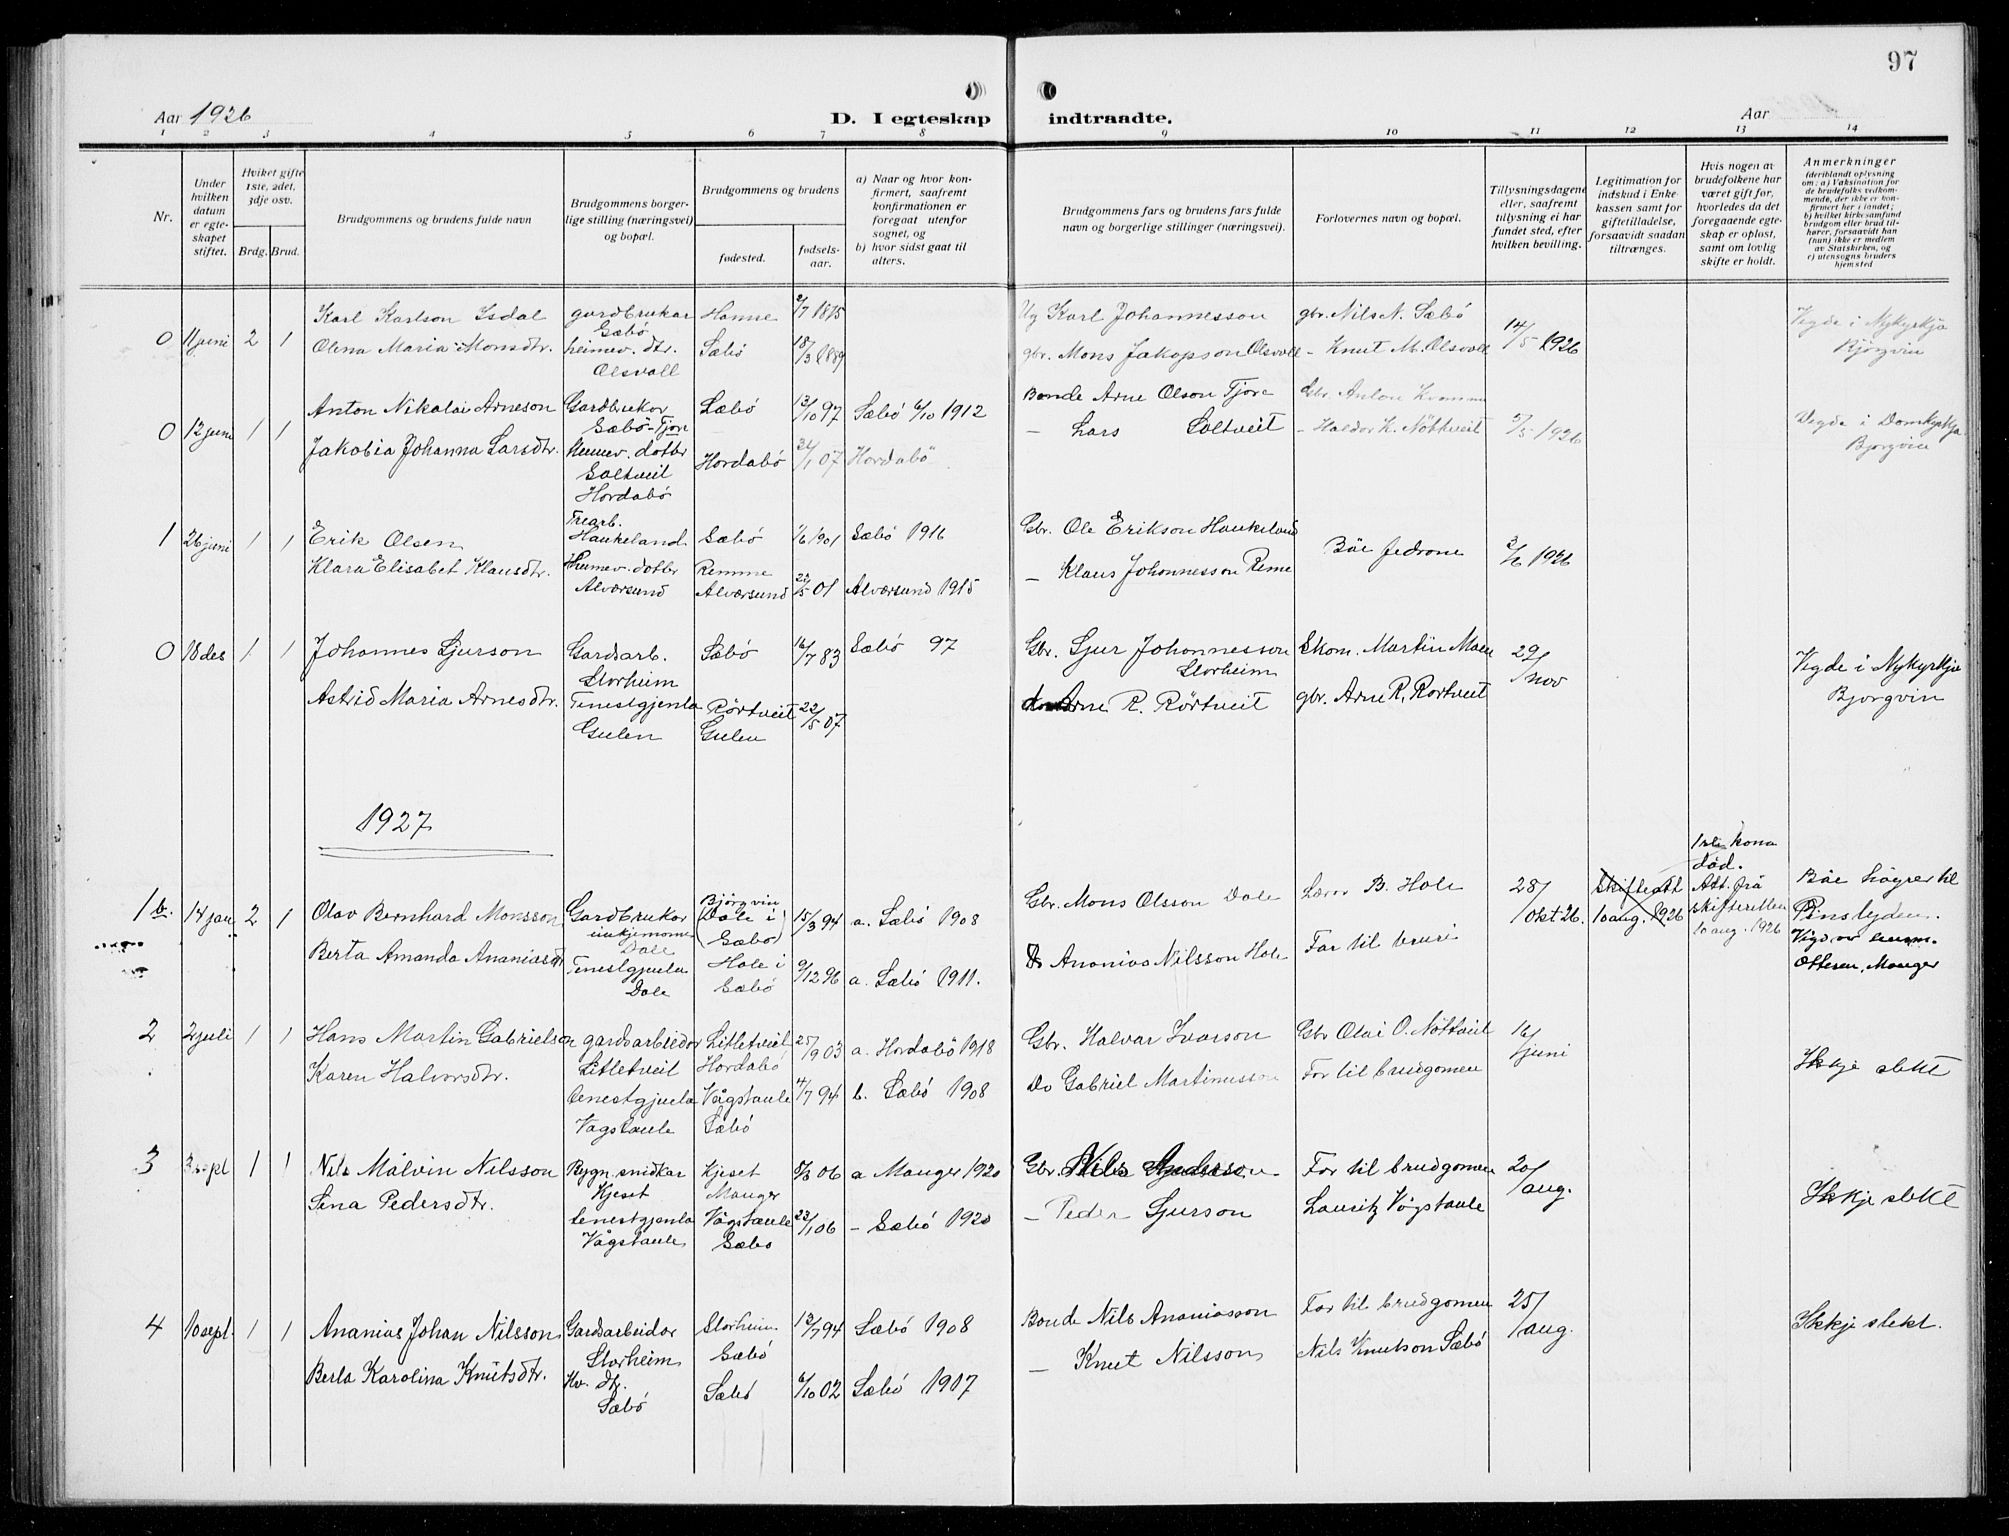 97
Aar 1926
D. I egteskap indtraadte.
Aar
1 2 3 4 5 6 7 8 9 10 11 12 13 14
Nr.
Under hvilken datum er egteskapet stiftet.
Hvilket gifte 1ste, 2det, 3dje osv.
Brdg. Brud.
Brudgommens og brudens fulde navn
Brudgommens borgerlige stilling (næringsvei) og bopæl.
Brudgommens og brudens
fødested.
fødselsaar.
a) Naar og hvor konfirmert, saafremt konfirmationen er foregaat utenfor sognet, og
b) hvor sidst gaat til alters.
Brudgommens fars og brudens fars fulde navn og borgerlige stillinger (næringsvei).
Forlovernes navn og bopæl.
Tillysningsdagene eller, saafremt tillysning ei har fundet sted, efter hvilken bevilling.
Legitimation for indskud i Enkekassen samt for giftetilladelse, forsaavidt saadan tiltrænges.
Hvis nogen av brudefolkene har været gift før, hvorledes da det foregaaende egteskap er opløst, samt om lovlig skifte er holdt.
Anmerkninger
(deriblandt oplysning om: a) Vaksination for de brudefolks vedkommende, der ikke er konfirmert her i landet; b) hvilket kirkesamfund brudgom eller brud tilhører, forsaavidt han (hun) ikke er medlem av Statskirken, og c) utensogns bruders hjemsted
0 11 juni 2 1 Karl Karlson Isdal gardbrukar Sæbö Hamre 2/7 1875 Karl Johannesson gbr. Nils N. Sæbö 14/5 1926 Vigde i Nykyrkja Bjórgvin
Olena Maria Monsdtr. heimev. dtr. Olsvoll Sæbö 18/3 1889 gbr. Mons Jakopson Olsvoll - Knut M. Olsvoll
0 12 juni 1 1 Anton Nikolai Arneson Gardbrukor Sæbö-Tjore Sæbö 13/10 97 Sæbö 6/10 1912 Bonde Arne Olson Tjore Gbr. Anton Kvamme 7/5 1926 Vigde i Domkyrkja Bjorgvin
Jakobia Johanna Larsdtr. Heimev. dotter Soltveit Hordabö Hordabö 07 Hordabö - Lars Soltveit - Haldor H. Nöttveit
1 26 juni 1 1 Erik Olsen Trearb. Haukeland Sæbö 1/6 1901 Sæbö 1916 Gbr. Ole Erikson Haukeland Båe fedrone 3/6 1926
Klara Elisabet Klausdtr. Heimev. dotter Alversund Remme Alversund 22/5 01 Alversund 1915 - Klaus Johannesson Reme
0 18 des 1 1 Johannes Sjurson Gardsarb. Storheim Sæbö 16/7 83 Sæbö 97 Gbr. Sjur Johannesson Storheim Skom. Martin 29/nov Vigde i Nykyrkja Bjorgvin
Astrid Maria Arnesdtr. Tenestgjenta Gulen Rörtveit Gulen 22/5 07 Arne R. Rörtveit gbr. Arne R. Rortveit
1927
1 b. 14 jan 2 1 Olav Bernhard Monsson Gardbrukar Dale Björgvin (Dale i Sæbö) 15/3 94 a. Sæbö 1908 Gbr. Mons Olsson Dale Lærar B. Hole 28/okt 26. Skifteatt 10 aug. 1926 1ste kona död. Att. frå skifteretten 10 aug. 1926 Båe höyrer til Pinslyden. Vigd av Ottesen, Manger
Berta Amanda Ananiasdtr Tenestgjenta Dale Hole i Sæbö 9/12 96 a. Sæbö 1911. Ananias Nilsson Hole Far til bruri
2 2 juli 1 1 Hans Martin Gabrielson gardsarbeidar Litletveit Litletveit Hordabö 25/9 03 a. Hordabö 1918 Gbr. Halvar Ivarson Gbr Olai O. Nöttveit 16/juni Ikkje slekt
Karen Halvorsdtr. tenestgjenta Vågstaule Vågstaule Sæbö 4/7 94 b. Sæbö 1908 Do Gabriel Martinusson Far til brudgomen
3 3 sept 1 1 Nils Målvin Nilsson Bygn. snidkar Kjeset Kjeset Manger 06 a Manger 1920 Gbr. Nils Anderson Far til brudgomen 20/aug. Ikkje slekt
Sina Pedersdtr. tenestgjenta Vågstaule Vågstaule Sæbö 23/1 06 - Sæbö 1920 - Peder Sjurson Lauritz Vågstaule
4 10 sept. 1 1 Ananias Johan Nilsson Gardsarbeidar Storheim Storheim Sæbö 13/7 94 Sæbö 1908 Bonde Nils Ananiasson Far til brudgomen 25/aug. Ikkje slekt.
Berta Karolina Knutsdtr. Hv. dtr. Sæbö Sæbö 6/10 02 Sæbö 1917 - Knut Nilsson Nils Knutson Sæbö